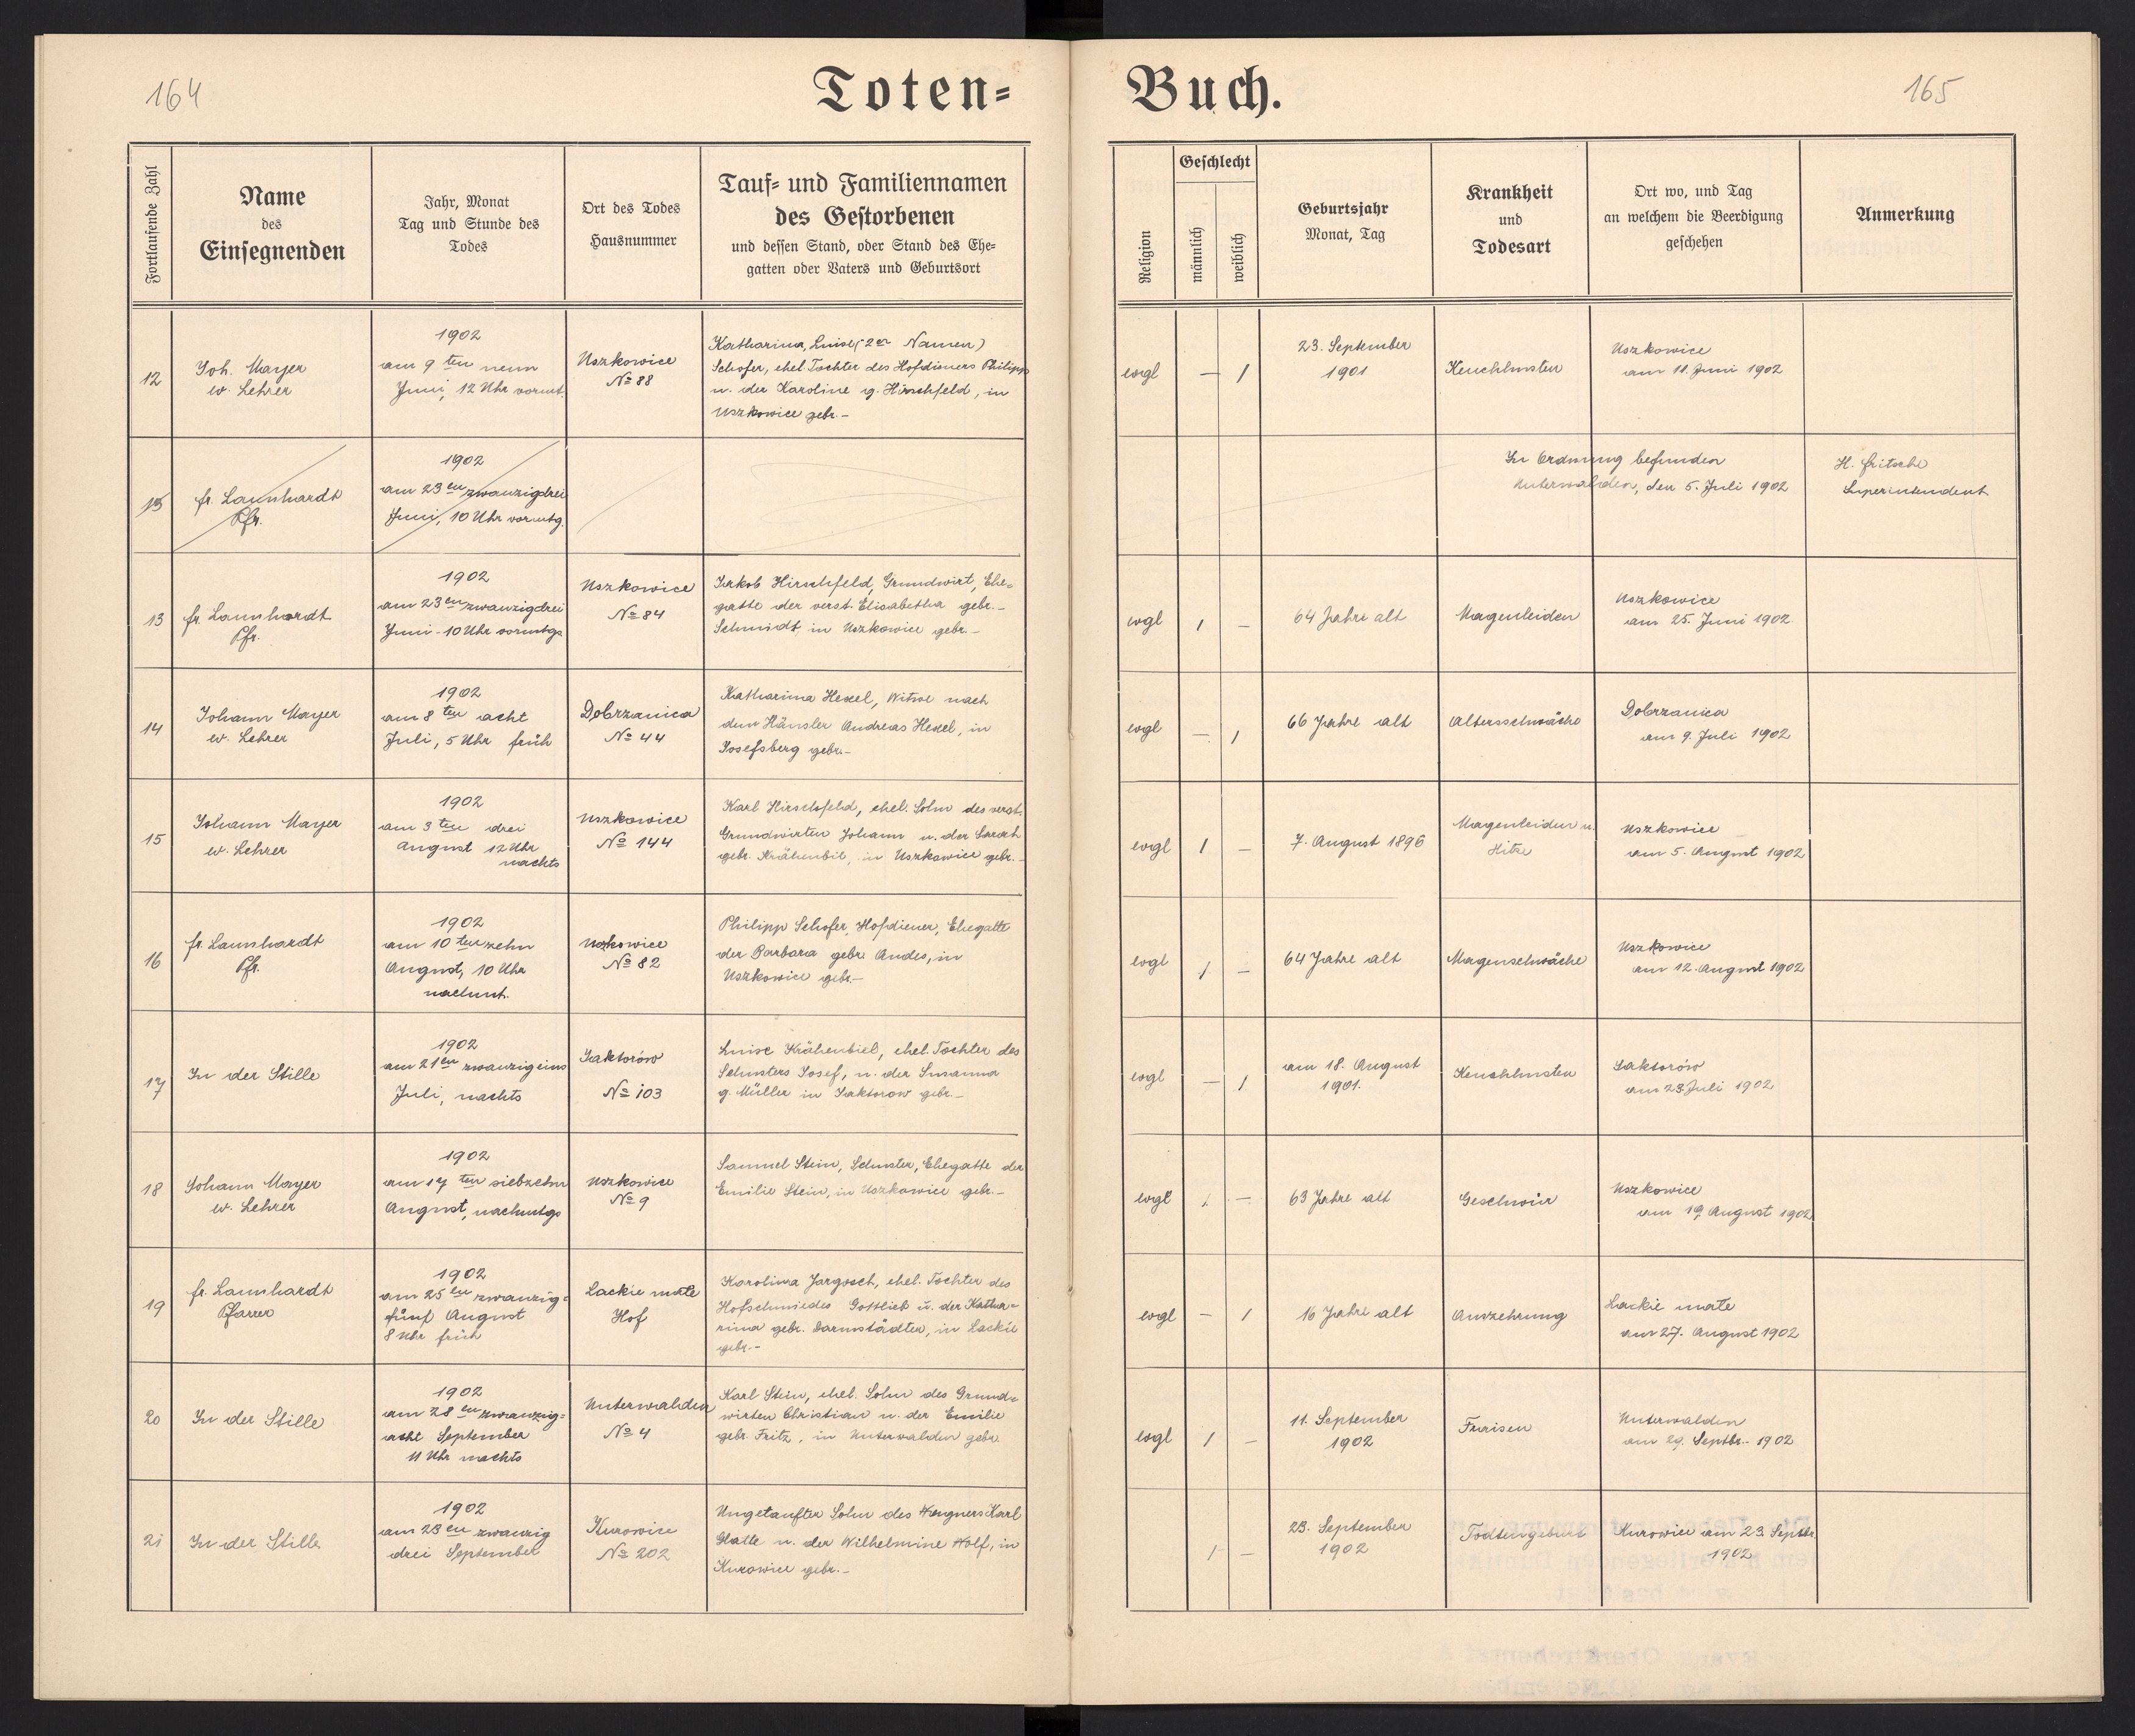 164
Toten-
Buch.
165
Fortlaufende Zahl
Name
des
Einsegnenden
Jahr, Monat
Tag und Stunde des
Todes
Ort des Todes
Hausnummer
Tauf- und Familiennamen
des Gestorbenen
und dessen Stand, oder Stand des Ehe-
gatten oder Vaters und Geburtsort
Religion
Geschlecht
männlich
weiblich
Geburtsjahr
Monat, Tag
Krankheit
und
Todesart
Ort wo, und Tag
an welchem die Beerdigung
geschehen
Anmerkung
12
Joh. Mayer
ev. Lehrer
1902
am 9ten neun
Juni, 12 Uhr vormt.
Uszkowice
№ 88
Katharina, Luise (2er Namen)
Schofer, ehel Tochter des Hofdieners Philipp
u. der Karoline g. Hirschfeld, in
Uszkowice gebr.-
evgl
— 1
23. September
1901
Keuchhusten
Uszkowice
am 11. Juni 1902
13
fr. Launhardt
Pfr.
1902
am 23en zwanzigdrei
Juni, 10 Uhr vormtg.
In Ordnung befunden
Unterwalden, den 5. Juli 1902
H. Fritsche
Superintendent
13
fr. Launhardt
Pfr.
1902
am 23en zwanzigdrei
Juni - 10 Uhr vormtgs
Uszkowice
№ 84
Jakob Hirschfeld, Grundwirt, Ehe-
gatte der verst. Elisabetha gebr.-
Schmidt in Uszkowice gebr.-
evgl
1 —
64 Jahre alt
Magenleiden
Uszkowice
am 25. Juni 1902
14
Johann Mayer
ev. Lehrer
1902
am 8ten acht
Juli, 5 Uhr früh
Dobrzanica
№ 44
Katharina Hexel, Witwe nach
dem Häusler Andreas Hexel, in
Josefsberg gebr.-
evgl
— 1
66 Jahre alt
Altersschwäche
Dobrzanica
am 9. Juli 1902
15
Johann Mayer
ev. Lehrer
1902
am 3ten drei
August 12 Uhr
nachts
Uszkowice
№ 144
Karl Hirschfeld, ehel. Sohn des verst.
Grundwirten Johann u. der
gebr. Krähenbil, in Uszkowice gebr.-
evgl
1 —
7. August 1896
Magenleiden u.
Hitze
Uszkowice
am 5. August 1902
16
fr. Launhardt
Pfr.
1902
am 10ten zehn
August, 10 Uhr
nachmt.
Uszkowice
№ 82
Philipp Schofer, Hofdiener, Ehegatte
der Barbara gebr. Andes, in
Uszkowice gebr.-
evgl
1 —
64 Jahre alt
Magenschwäche
Uszkowice
am 12. August 1902
17
In der Stille
1902
am 21en zwanzigeins
Juli, nachts
Laktorów
№ 103
Luise Krähenbiel, ehel. Tochter des
Schusters Josef, u. der Susanna
g. Müller in Laktorow gebr.-
evgl
— 1
am 18. August
1901.
Keuchhusten
Laktorów
am 23 Juli 1902
18
Johann Mayer
ev. Lehrer
1902
am 17ten siebzehn
August, nachmtgs
Uszkowice
№ 9
Samuel Stein, Schuster, Ehegatte der
Emilie Stein, in Uszkowice gebr.-
evgl
1 —
63 Jahre alt
Geschwür
Uszkowice
am 19 August 1902
19
fr. Launhardt
Pfarrer
1902
am 25ten zwanzig-
fünf August
8 Uhr früh
Lackie małe
Hof
Karolina Jargosch, ehel. Tochter des
Hofschmiedes Gottlieb u. der Katha-
rina gebr. Darmstädter, in Lackie
gebr.-
evgl
— 1
16 Jahre alt
Auszehrung
Lackie małe
am 27. August 1902
20
In der Stille
1902
am 28en zwanzig-
acht September
11 Uhr nachts
Unterwalden
№ 4
Karl Stein, ehel. Sohn des Grund-
wirten Christian u. der Emilie
gebr. Fritz, in Unterwalden gebr.
evgl
1 —
11. September
1902
Fraisen
Unterwalden
am 29. Septbr.- 1902
21
In der Stille
1902
am 23en zwanzig
drei September
Kurowice
№ 202
Ungetaufter Sohn des Wagners Karl
Glatte u. der Wilhelmine Wolf, in
Kurowice gebr.-
1 —
23. September
1902
Todtengeburt
Kurowice am 23. Septbr
1902